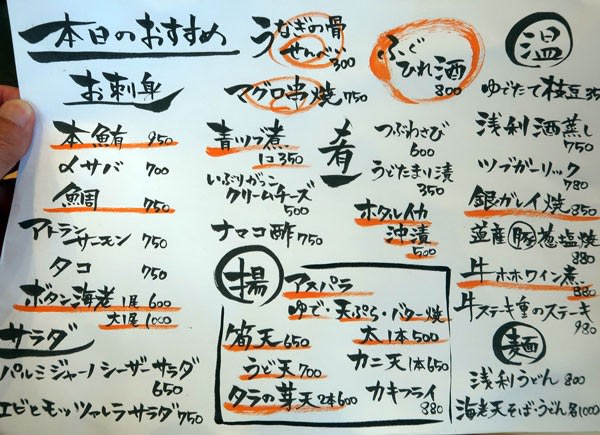 本日のおすすめ
お刺身
本鮪 950
〆サバ 700
鯛 750
アトランサーモン 750
タコ 750
ボタン海老 1尾 600
大1尾 1000
サラダ
パルミジャーノシーザーサラダ
650
エビとモッツァレラサラダ 750
うなぎの骨
せんべい
300
マグロ串焼 750
青ツブ煮
1コ 350
いぶりがっこ
クリームチーズ
500
ナマコ酢 750
肴
ふぐ
ひれ酒
800
つぶわさび
600
うどたまり漬
350
ホタルイカ
沖漬
500
揚
アスパラ
ゆで・天ぷら・バター焼
太1本 500
筍天 650
うど天 700
タラの芽天 2本 600
カニ天 1本 650
カキフライ
880
温
ゆでたて枝豆 35
浅利酒蒸し
750
ツブガーリック
780
銀ガレイ焼 850
道産豚葱塩焼
880
牛ホホワイン煮
880
牛ステーキ重のステーキ
980
麺
浅利うどん 800
海老天そば・うどん 各1000